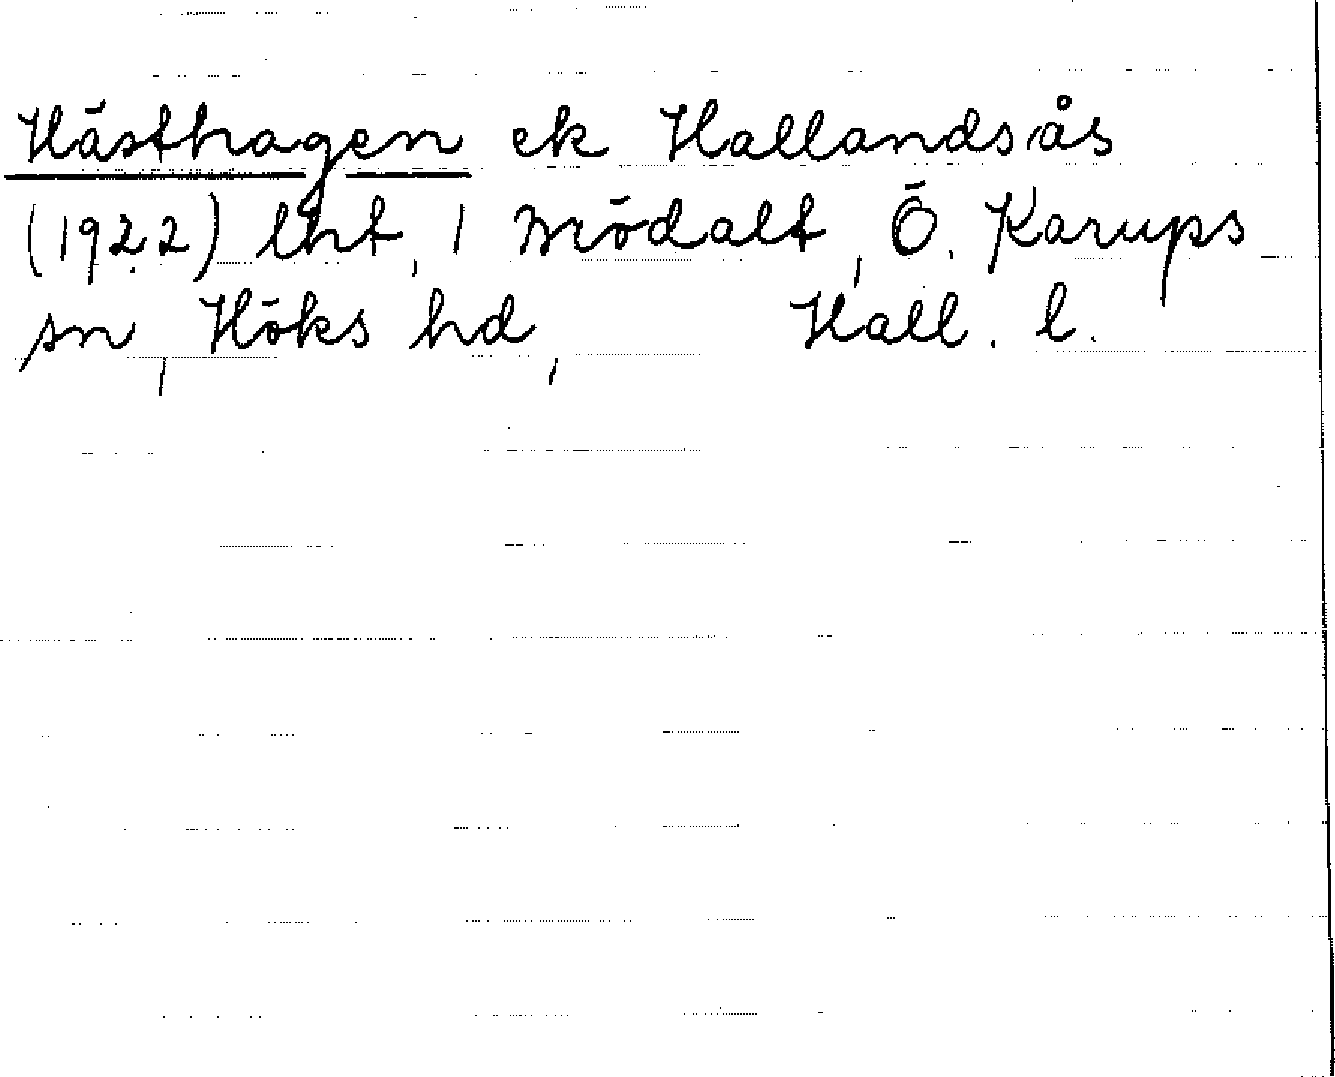 Hästhagen ek Hallandsås
(1922) lht, 1 Mödalt, Ö. Karups
sn, Höks hd, Hall. l.